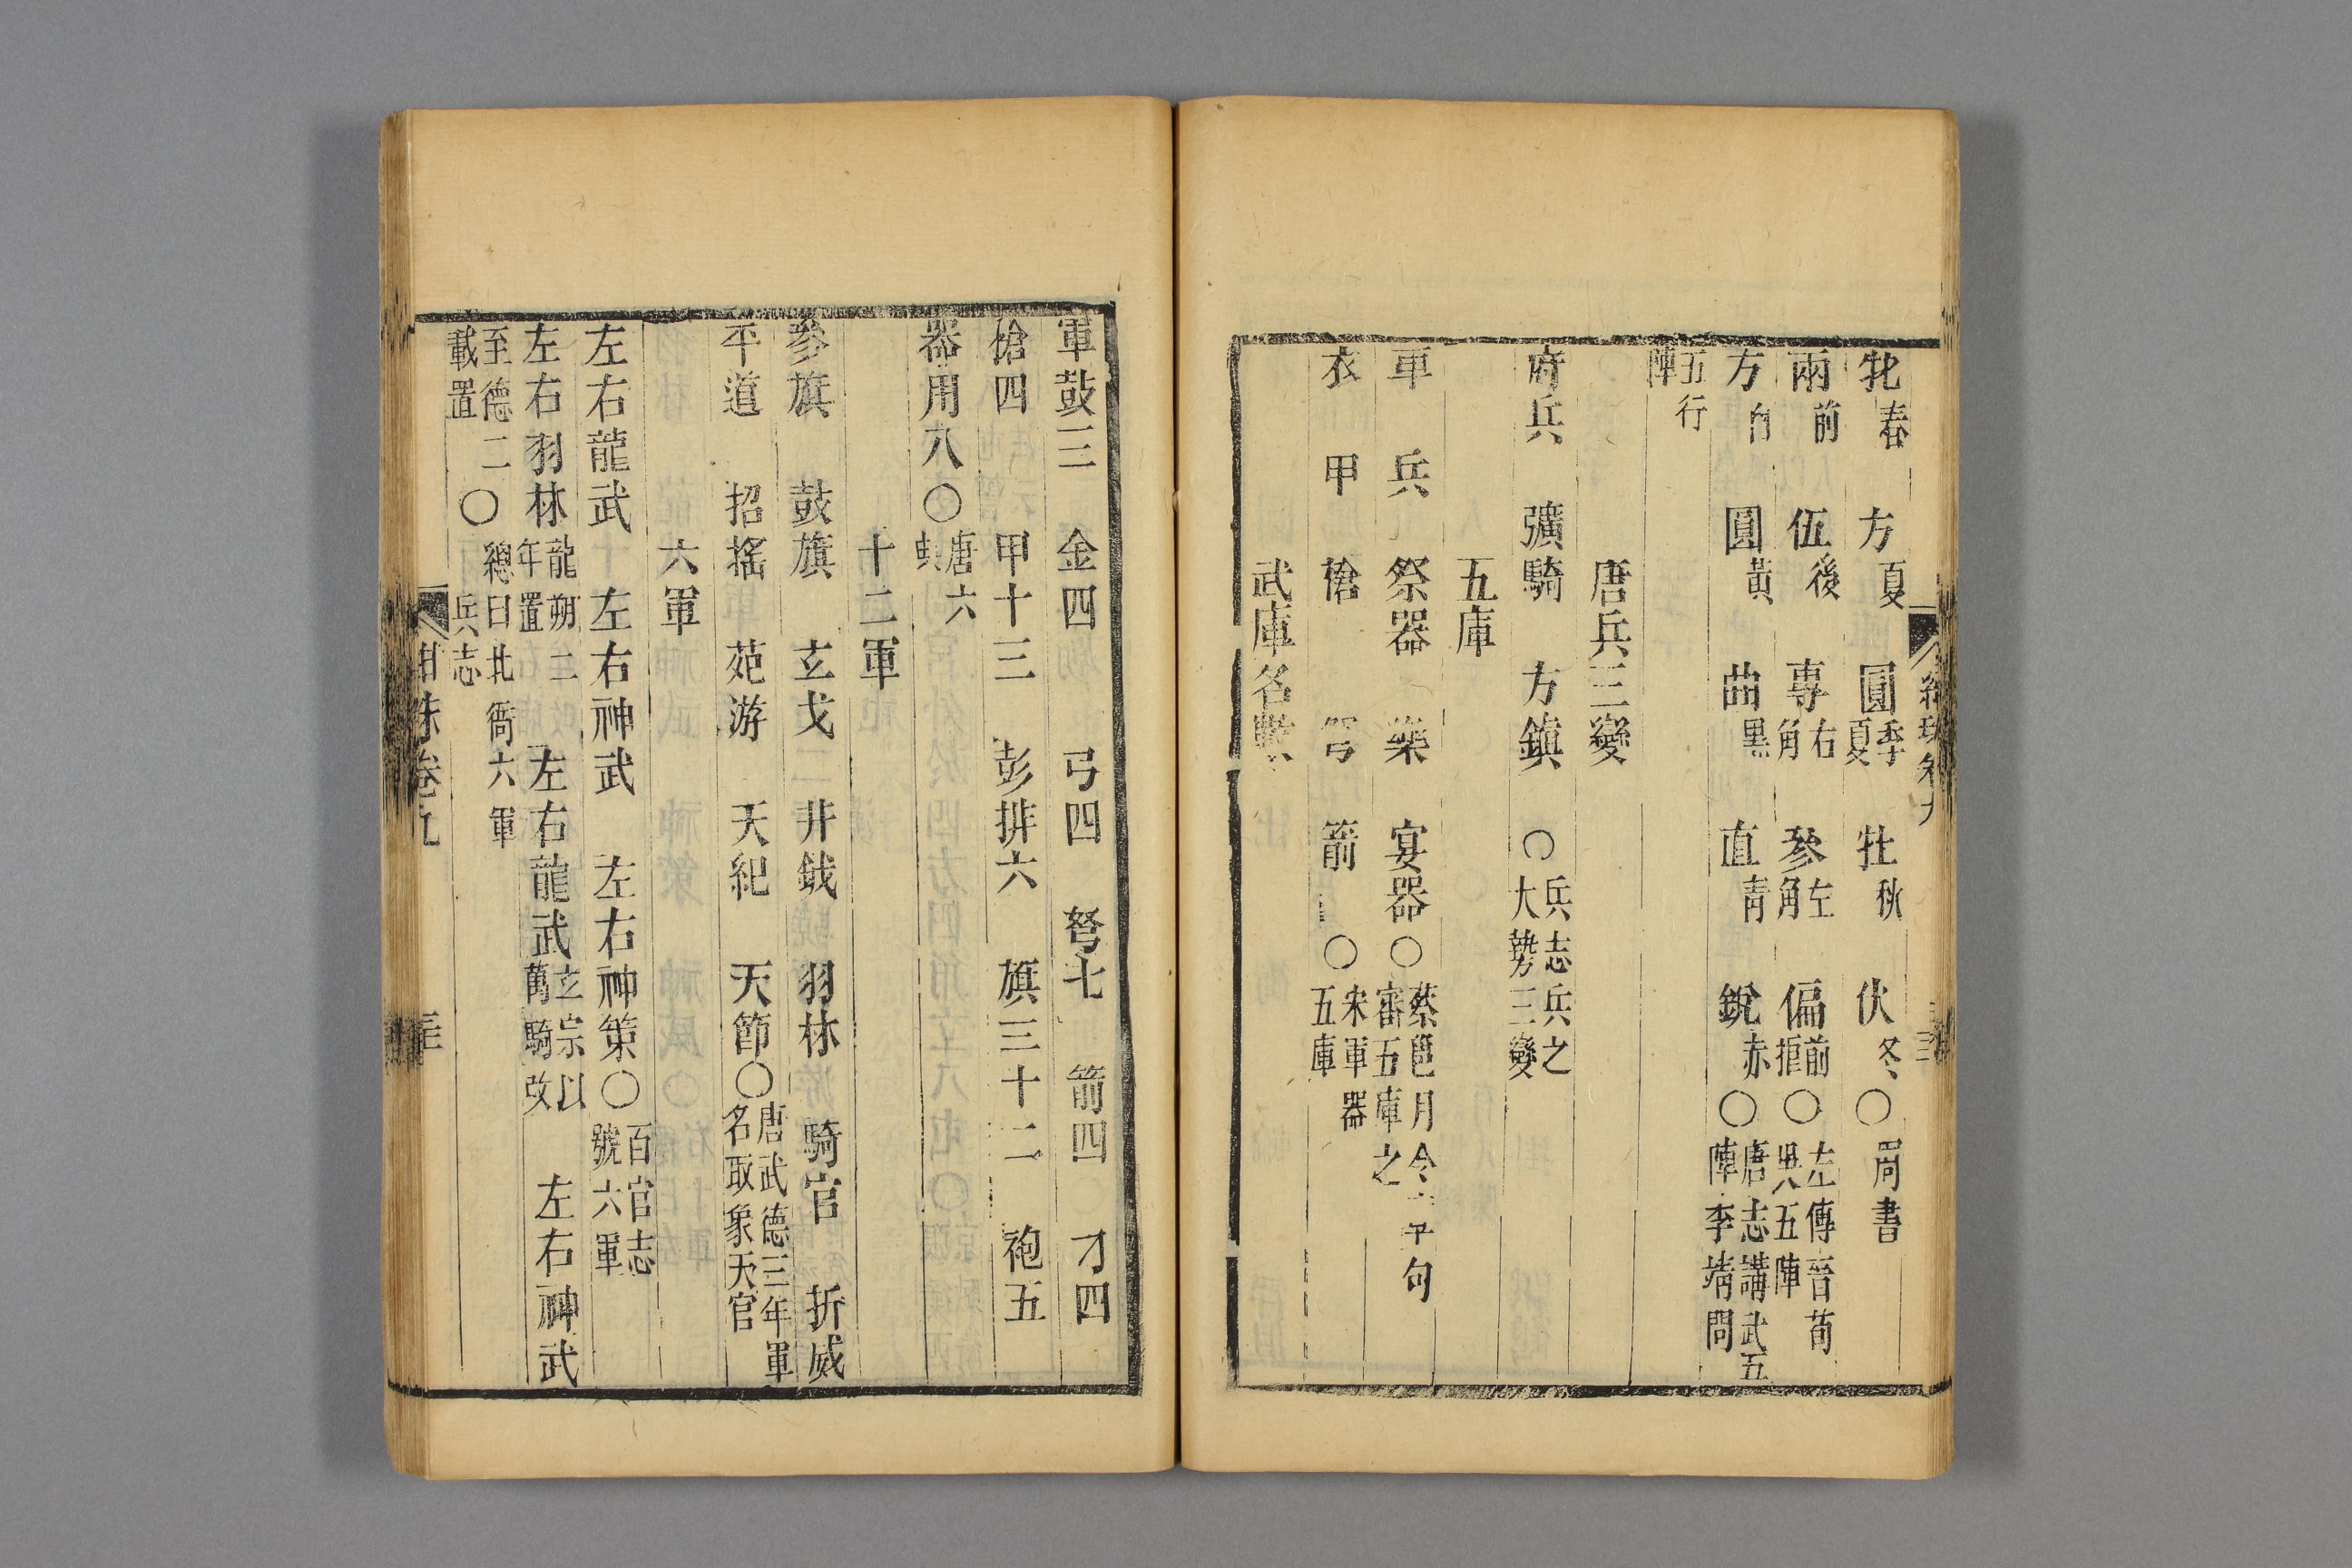 牝春 方夏 圓季夏 牡秋 伏冬〇周書
兩前 伍後 專右角 參左角 偏前拒〇左傳晉荀吳五陣
方白 圓黃 曲黑 直青 銳赤〇唐志講武五陣李靖問
五行陣
唐兵三變
府兵 彍騎 方鎮 〇兵志兵之大勢三變
五庫
車 兵 祭器 樂 宴器〇蔡邕月令章句審五庫之
衣 甲 槍 弩 箭 〇宋軍器五庫
武庫名數
軍鼓三 金四 弓四 弩七 箭四 刀四
槍四 甲十三 彭排六 旗三十二 袍五
器用八〇唐六典
十二軍
參旗 鼓旗 玄戈 井鉞 羽林 騎官 折威
平道 招搖 苑游 天紀 天節〇唐武德三年軍名取象天官
六軍
左右龍武 左右神武 左右神策〇百官志號六軍
左右羽林龍朔二年置 左右龍武玄宗以萬騎改 左右神武
至德二載置〇總曰北衙六軍兵志